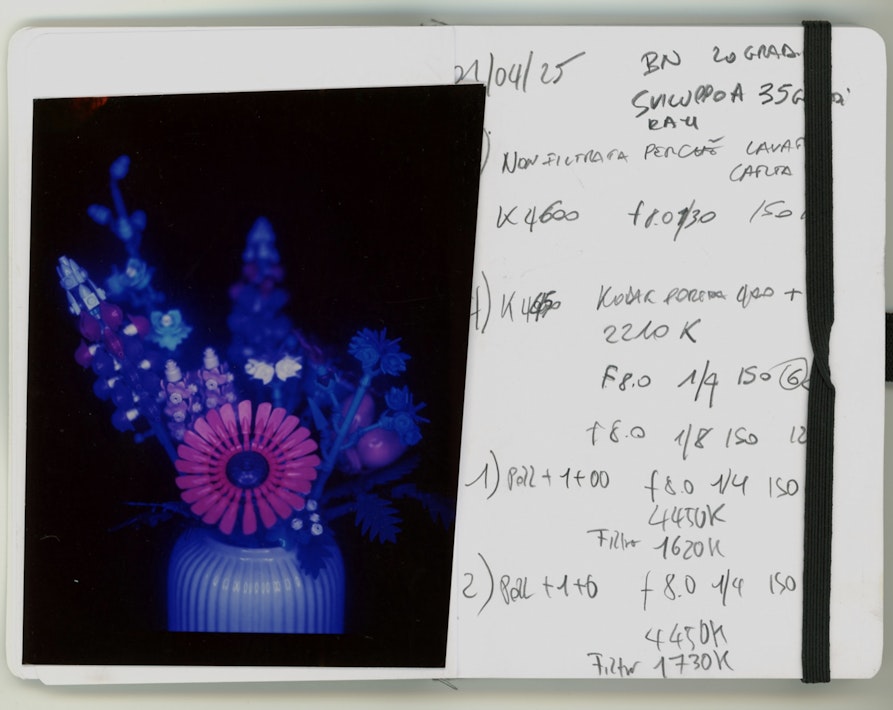 21/04/25
BN 20 GRADI
SVILUPPO A 35 GRADI
RA4
NON FILTRATA PERCHÈ LAVAT
CARTA
K 4600 f8.0 1/30 ISO
K 4650 KODAK PORTRA 400 +
2210 K
F8.0 1/4 ISO 6
f8.0 1/8 ISO 12
1) Pell + 1 + 00 f8.0 1/4 ISO
4450K
Filtro 1620K
2) Pell + 1 + 6 f8.0 1/4 ISO
4450K
Filtro 1730K